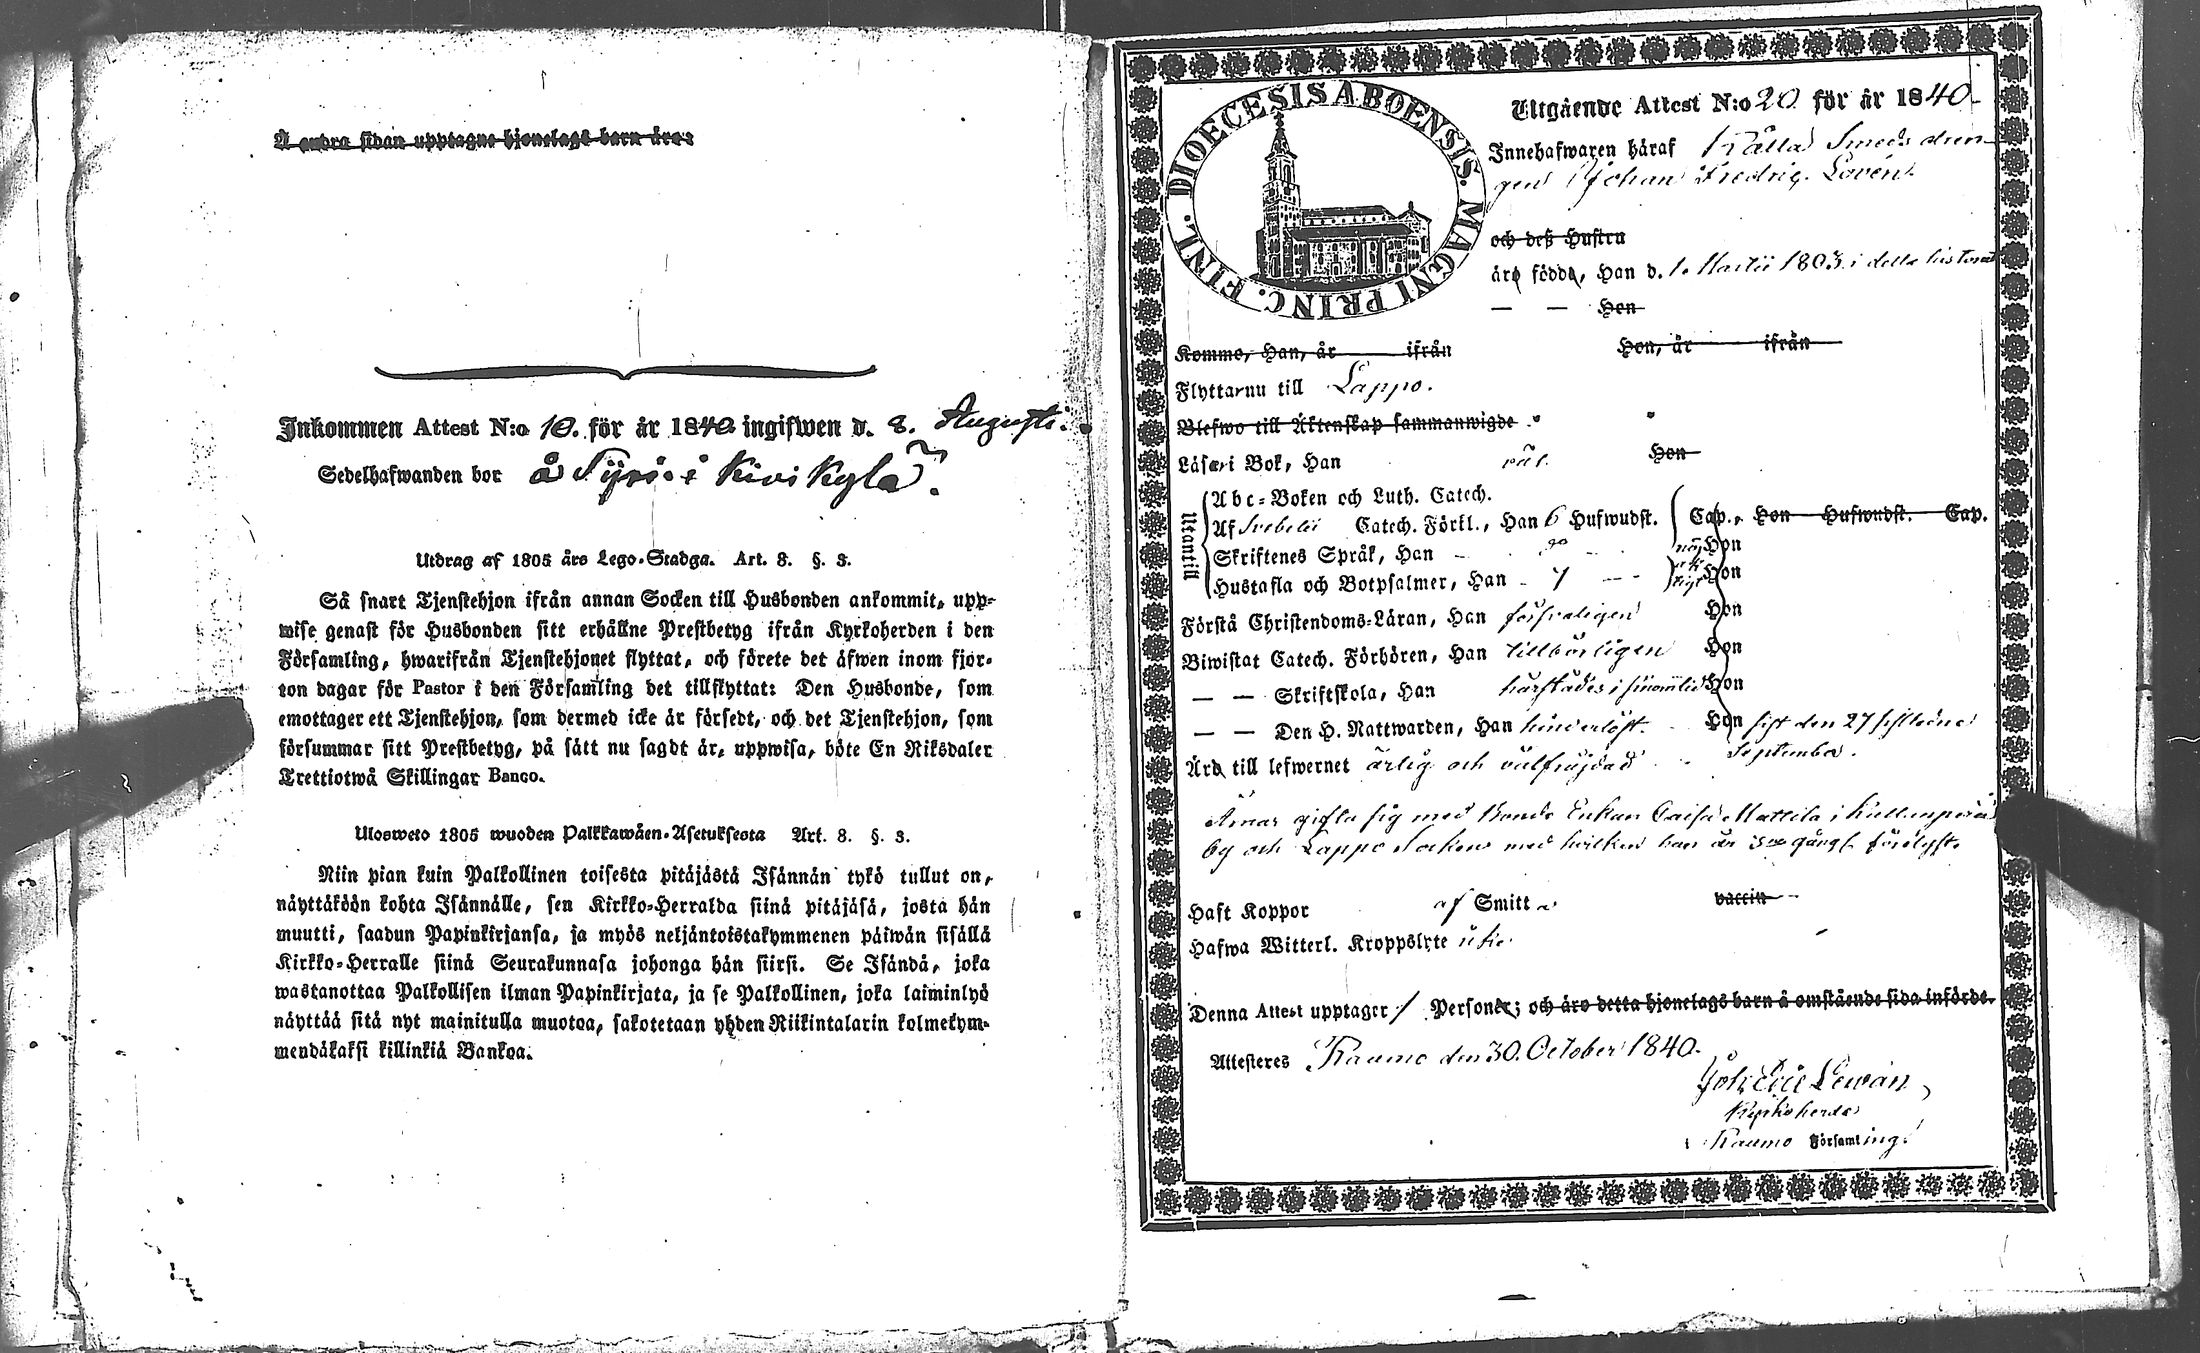 Å andra sidan upptagne hjonelags barn äro:
Inkommen Attest N:o 10. för år 1840 ingifwen d. 8. Augusti.
Sedelhafwanden bor å Tyris i Kivikylä.
Utdrag af 1805 års Lego-Stadga. Art. 8. §. 3.
Så snart Tjenstehjon ifrån annan Socken till Husbonden ankommit, upp-
wise genast för Husbonden sitt erhållne Prestbetyg ifrån Kyrkoherden i den
Församling, hwarifrån Tjenstehjonet flyttat, och förete det äfwen inom fjor-
ton dagar för Pastor i den Församling det tillflyttat: Den Husbonde, som
emottager ett Tjenstehjon, som dermed icke är försedt, och det Tjenstehjon, som
försummar sitt Prestbetyg, på sätt nu sagdt är, uppwisa, böte En Riksdaler
Trettiotwå Skillingar Banco.
Ulosweto 1805 wuoden Palkkawäen-Asetuksesta Art. 8. §. 3.
Niin pian kuin Palkollinen toisesta pitäjästä Isännän tykö tullut on,
näyttäköön kohta Isännälle, sen Kirkko-Herralda siinä pitäjäsä, josta hän
muutti, saadun Papinkirjansa, ja myös neljäntoistakymmenen päiwän sisällä
Kirkko-Herralle siinä Seurakunnasa johonga hän siirsi. Se Isändä, joka
wastanottaa Palkollisen ilman Papinkirjata, ja se Palkollinen, joka laiminlyö
näyttää sitä nyt mainitulla muotoa, sakotetaan yhden Riikintalarin kolmekym-
mendäkaksi killinkiä Bankoa.
DIOECESIS ABOENSIS. MAGNI PRINC. FINL.
Utgående Attest N:o 20 för år 1840
Innehafwaren häraf Källa Smeds dren-
gen Johan Fredric Lovén.
och deß Hustru
äro födde, Han d. 1. Martii 1803 i detta
— — Hon
Komme, Han, år ifrån Hon, år ifrån
Flyttar nu till Lappo.
Blefwo till Äktenskap sammanwigde
Läser i Bok, Han väl. Hon
Utantill
Abc-Boken och Luth. Catech.
Af Svebelii Catech. Förkl., Han 6 Hufwudst. Cap., Hon Hufwudst. Cap.
Skriftenes Språk, Han Hon
Hustafla och Botpsalmer, Han Hon
Förstå Christendoms-Läran, Han försvarligen Hon
Biwistat Catech. Förhören, Han tillbörligen Hon
— — Skriftskola, Han härstädes i Hon
— — Den H. Nattwarden, Han hinderlöst. Hon sist den 27 sistledne
September.
Äro till lefwernet ärlig och välfräjdad
Ämar gifta sig med Bonde Enkan Caisa Mattila i
by och Lappo Socken med hvilken han är 3ne gångr förelyst.
Haft Koppor af Smitta vaccin
Hafwa Witterl. Kroppslyte icke
Denna Attest upptager 1 Personer; och äro detta hjonelags barn å omstående sida införde.
Attesteres Raumo den 30. October 1840.
Joh: Eric Lewan
Kyrkoherde
Raumo Församling.